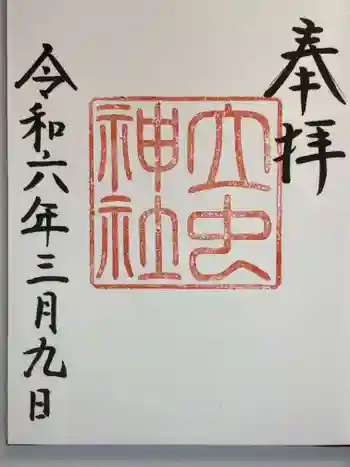 奉拝
立虫
神社
令和六年三月九日